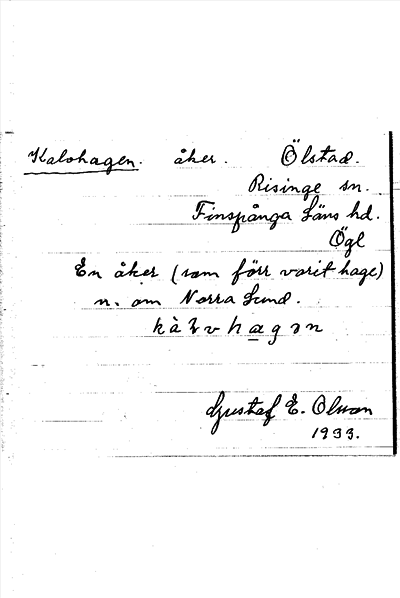 Kalvhagen. åker. Ölstad.
Risinge sn.
Finspånga Läns hd.
Ögl
En åker (som förr varit hage)
n. om Norra Lund.
Gustaf E. Olsson
1933.